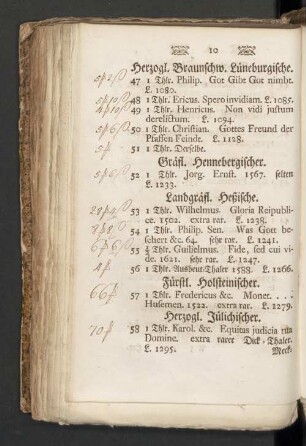 10
Herzogl. Braunschw. Lüneburgische.
47 1 Thlr. Philip. Got Gibt Got nimbt.
L. 1080.
48 1 Thlr. Ericus. Spero invidiam. L. 1085.
49 1 Thlr. Henricus. Non vidi justum
derelictum. L. 1094.
50 1 Thlr. Christian. Gottes Freund der
Pfaffen Feinde. L. 1128.
51 1 Thlr. Derselbe.
Gräfl. Hennebergischer.
52 1 Thlr. Jorg. Ernst. 1567. selten
L. 1233.
Landgräfl. Heßische.
53 1 Thlr. Wilhelmus. Gloria Reipubli-
ce. 1502. extra rar. L. 1238.
54 1 Thlr. Philip. Sen. Was Gott be-
schert &c. 64. sehr rar. L. 1241.
55 Thlr. Guilielmus. Fide, sed cui vi-
de. 1621. sehr rar. L. 1247.
56 1 Thlr. Ausbeut/Thaler 1588. L. 1266.
Fürstl. Holsteinischer.
57 1 Thlr. Fredericus &c. Monet. . . .
Husemen. 1522. extra rar. L. 1279.
Herzogl. Jülichischer.
58 1 Thlr. Karol. &c. Equitas judicia tua
Domine. extra rarer Dick-Thaler.
L. 1295.
Meck-